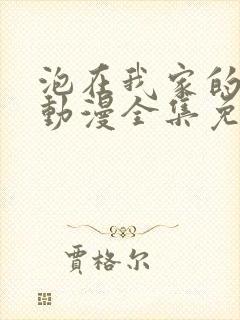 泡在我家的
動漫全集免
賈格尔